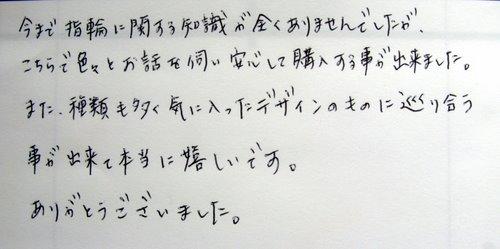 今まで指輪に関する知識が全くありませんでしたが、
こちらで色々とお話を伺い安心して購入する事が出来ました。
また、種類も多く気に入ったデザインのものに巡り合う
事が出来て本当に嬉しいです。
ありがとうございました。